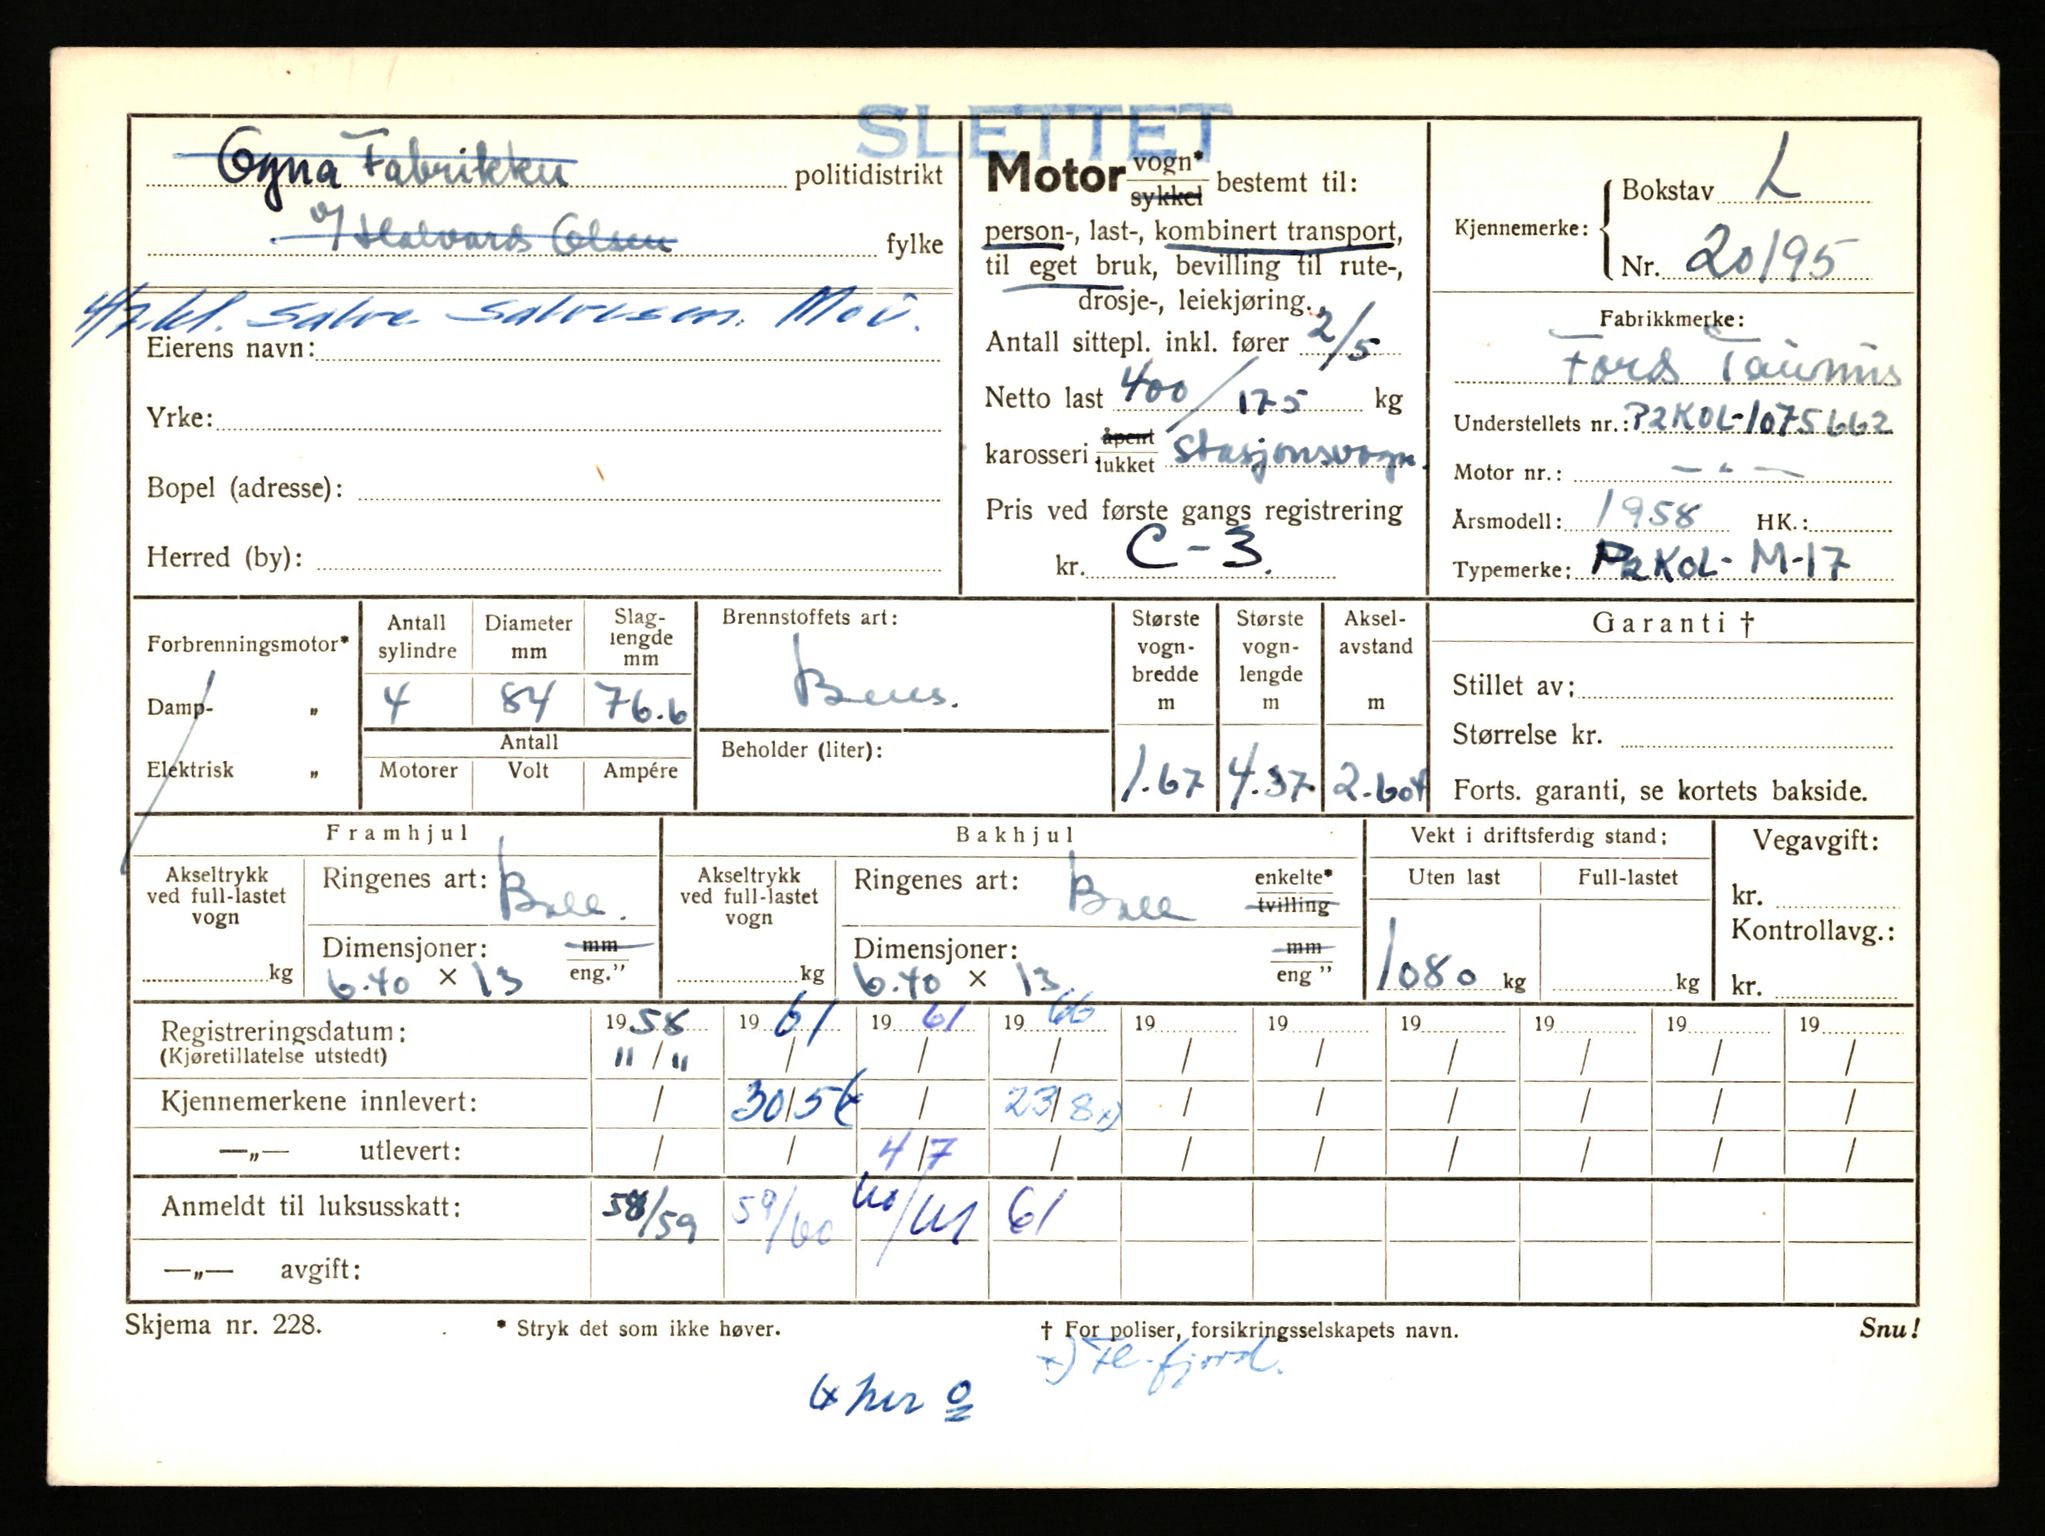 SLETTET
Ogna Fabrikker politidistrikt
v/ Halvard Olsen fylke
4/7.61. Salve Salvesen. Moi.
Eierens navn:
Yrke:
Bopel (adresse):
Herred (by):
Motor vogn* sykkel bestemt til:
person-, last-, kombinert transport,
til eget bruk, bevilling til rute-,
drosje-, leiekjøring.
Antall sittepl. inkl. fører 2/5
Netto last 400/175 kg
karosseri åpent lukket Stasjonsvogn.
Pris ved første gangs registrering
kr. C-3.
Kjennemerke: Bokstav L
Nr. 20195
Fabrikkmerke:
Ford Taunus
Understellets nr.: P2KOL-1075662
Motor nr.: — " —
Årsmodell: 1958 HK.:
Typemerke: P2KOL- M-17
Forbrenningsmotor*
Damp- „
Elektrisk „
Antall sylindre Diameter mm Slag-lengde mm
4 84 76.6
Antall
Motorer Volt Ampére
Brennstoffets art:
Bens.
Beholder (liter):
Største vogn-bredde m Største vogn-lengde m Aksel-avstand m
1.67 4.37 2.604
Garanti †
Stillet av:
Størrelse kr.
Forts. garanti, se kortets bakside.
Framhjul
Akseltrykk ved full-lastet vogn
kg
Ringenes art: Ball.
Dimensjoner: mm eng.”
6.40 × 13
Bakhjul
Akseltrykk ved full-lastet vogn
kg
Ringenes art: Ball enkelte* tvilling
Dimensjoner: mm eng ”
6.40 × 13
Vekt i driftsferdig stand:
Uten last Full-lastet
1080 kg kg
Vegavgift:
kr.
Kontrollavg.:
kr.
Registreringsdatum: 1958 1961 1961 1966 19 19 19 19 19 19
(Kjøretillatelse utstedt) 11/11 / / / / / / / / /
Kjennemerkene innlevert: / 30/5 / 23/8 x) / / / / / /
—„— utlevert: / / 4/7 / / / / / / /
Anmeldt til luksusskatt: 58/59 59/60 60/61 61
—„— avgift:
Skjema nr. 228. * Stryk det som ikke høver. † For poliser, forsikringsselskapets navn. Snu!
x) Fl.fjord.
her